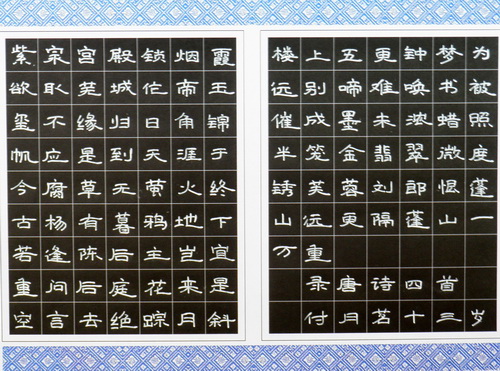 紫泉宫殿锁烟霞
欲取芜城作帝玉
玺不缘归日角锦
帆应是到天涯于
今腐草无萤火终
古杨有暮鸦地下
若逢陈后主岂宜
重问后庭花来是
空言去绝踪月斜
楼上五更钟梦为
远别啼难唤书被
催成墨未浓蜡照
半笼金翡翠微度
锈芙蓉刘郎恨蓬
山远更隔蓬山一
万重
录唐诗四首
付月茗十三岁